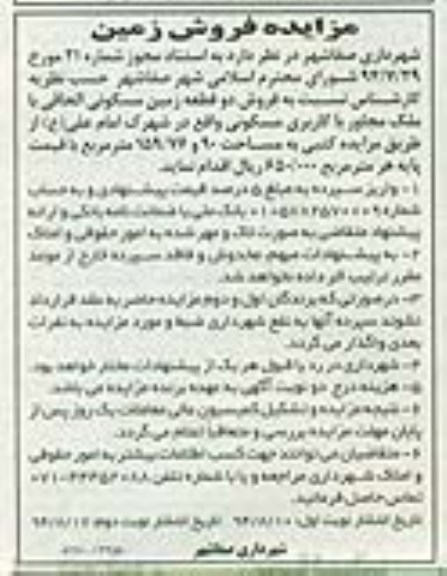 مزایده فروش زمین
شهرداری صفاشهر در نظر دارد به استناد مجوز شماره ۲۱ مورخ
۹۴/۷/۲۹ شورای محترم اسلامی شهر صفاشهر حسب نظریه
کارشناس نسبت به فروش دو قطعه زمین مسکونی الحاقی با
ملک مجاور با کاربری مسکونی واقع در شهرک امام علی(ع) از
طریق مزایده کتبی به مساحت ۹۰ و ۱۵۹/۷۶ مترمربع با قیمت
پایه هر مترمربع ۶۵۰/۰۰۰ ریال اقدام نماید.
۱- واریز سپرده به مبلغ ۵ درصد قیمت پیشنهادی و به حساب
شماره بانک ملی یا ضمانت نامه بانکی و ارایه
پیشنهاد متقاضی به صورت لاک و مهر شده به امور حقوقی و املاک
۲- به پیشنهادات مبهم، مخدوش و فاقد سپرده خارج از موعد
مقرر ترتیب اثر داده نخواهد شد.
۳- در صورتی که برندگان اول و دوم مزایده حاضر به عقد قرارداد
نشوند سپرده آنها به نفع شهرداری ضبط و مورد مزایده به نفرات
بعدی واگذار می گردد.
۴- شهرداری در رد یا قبول هر یک از پیشنهادات مختار خواهد بود.
۵- هزینه درج دو نوبت آگهی به عهده برنده مزایده می باشد.
۶- نتیجه مزایده و تشکیل کمیسیون عالی معاملات یک روز پس از
پایان مهلت مزایده بررسی و متعاقبا اعلام می گردد.
۶- متقاضیان می توانند جهت کسب اطلاعات بیشتر به امور حقوقی
و املاک شهرداری مراجعه و یا با شماره تلفن
تماس حاصل فرمایید.
تاریخ انتشار نوبت اول: ۹۴/۸/۱۰ تاریخ انتشار نوبت دوم: ۹۴/۸/۱۷
شهرداری صفاشهر